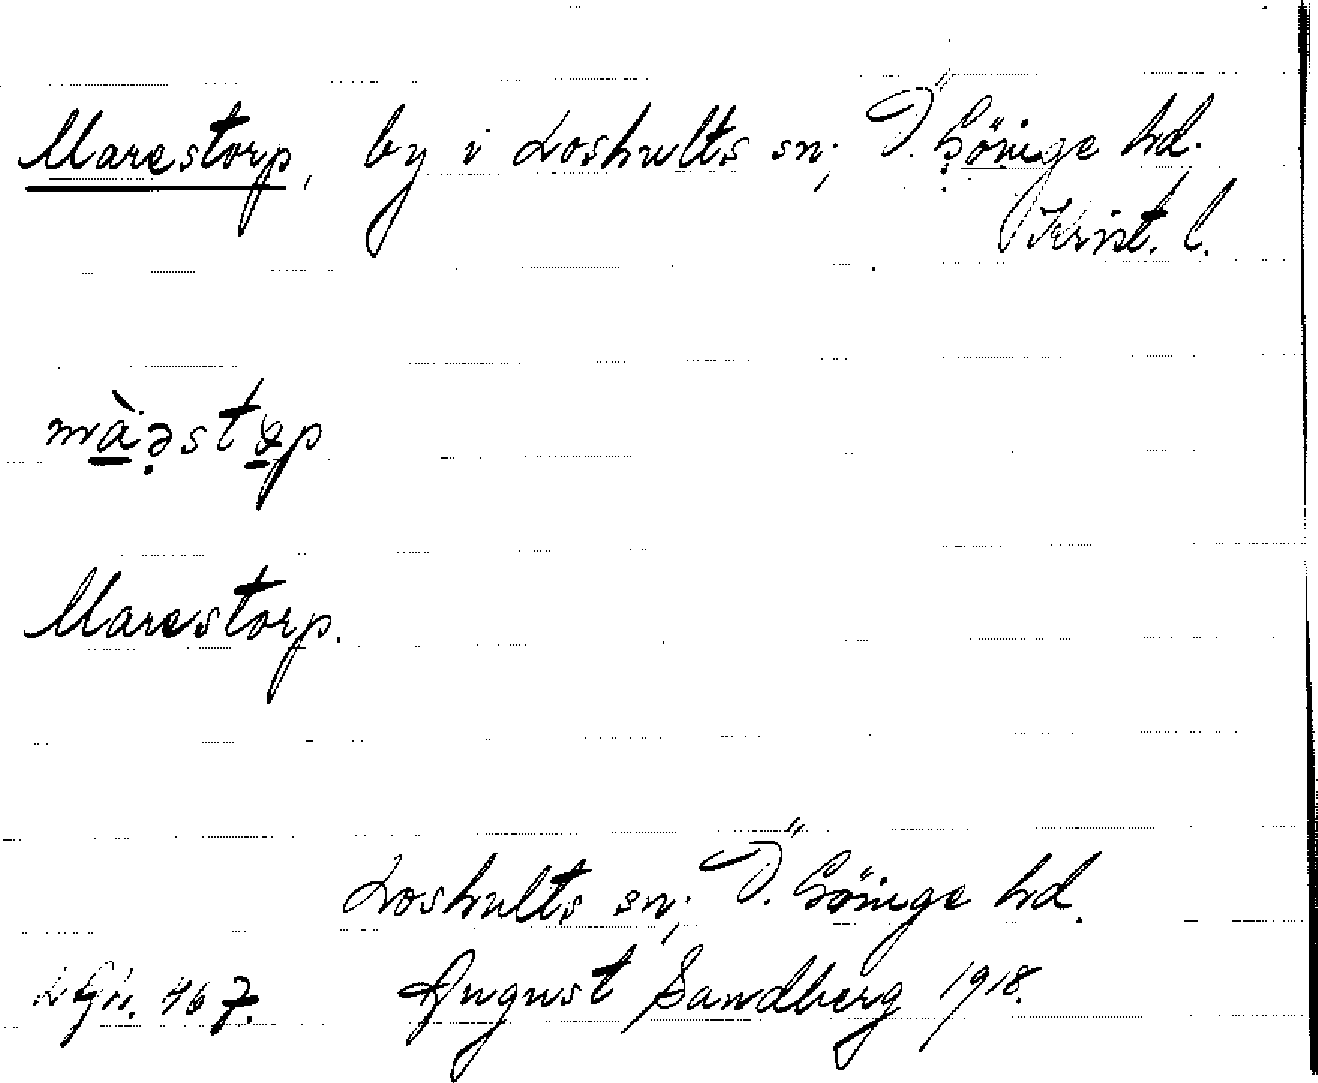 Marestorp, by i Loshults sn, Ö. Göinge hd.
Krist. l.
Marestorp.
Loshults sn, Ö. Göinge hd.
467. August Sandberg 1918.